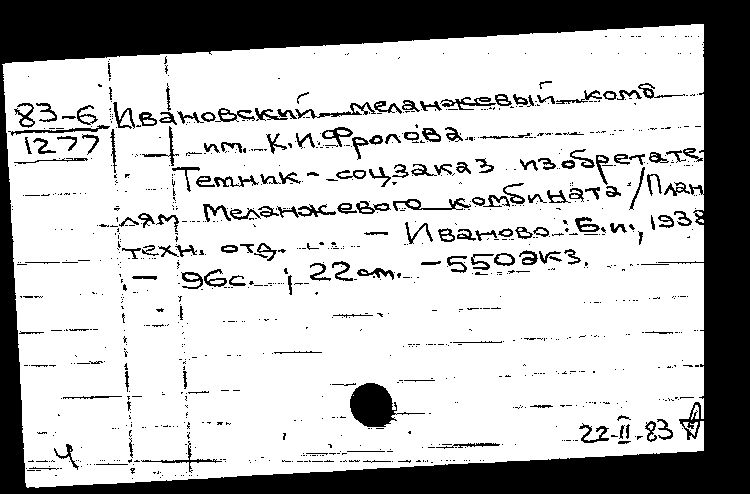 83-6 Ивановский меланжевый комб
1277 им. К.И.Фролова.
Темник-соцзаказ изобретате-
лям Меланжевого комбината /План
техн. отд. ... - Иваново: Б.и., 1938
- 96с. ; 22см. -550экз.
22-II-83
Ч